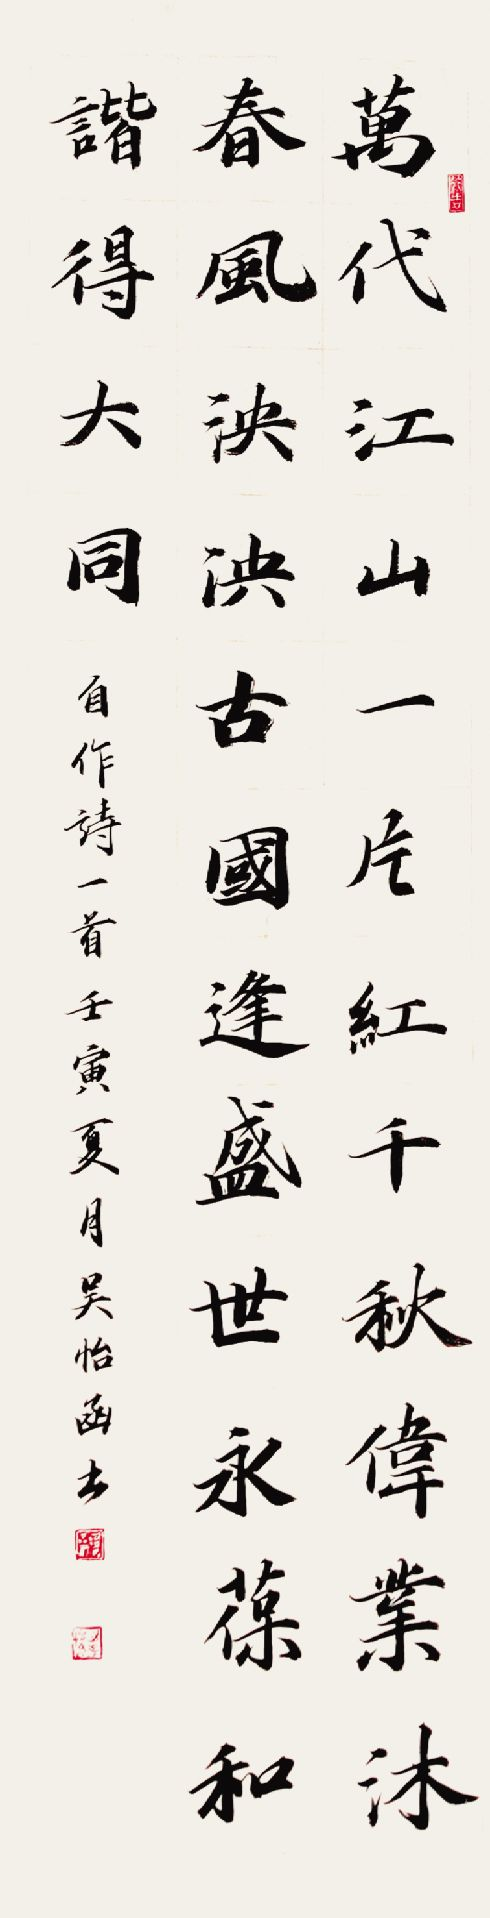 萬代江山一片紅千秋偉業沐
春風泱泱古國逢盛世永葆和
諧得大同
自作詩一首壬寅夏月吴怡函书